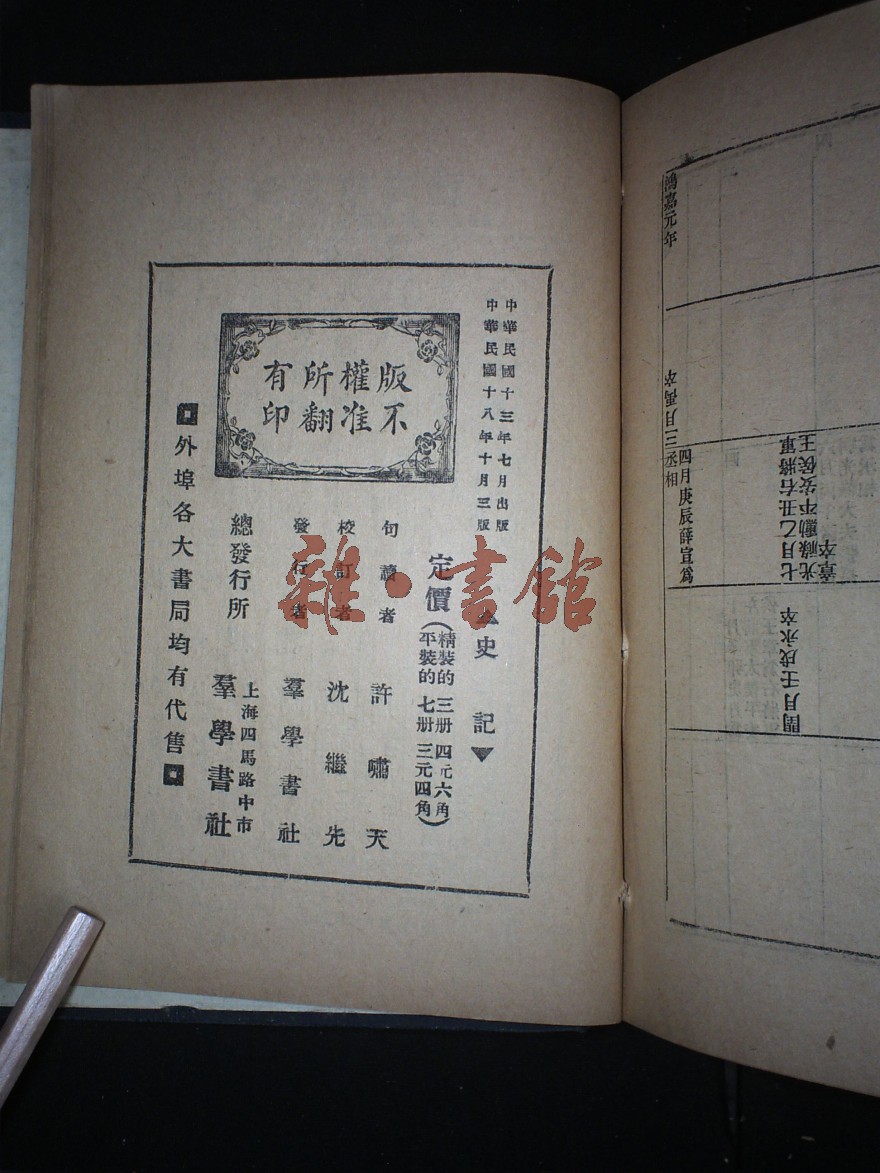 鴻嘉元年
三月禹卒
四月庚辰薛宣爲
丞相
七月乙丑右將軍
光祿勳平安侯王
章卒
閏月壬戌永卒
中華民國十三年七月出版
中華民國十八年十月三版
版權所有
不准翻印
史記
定價(精裝的三册四元六角
平裝的七册三元四角)
句讀者 許嘯天
校訂者 沈繼先
發行者 羣學書社
總發行所 上海四馬路中市
羣學書社
外埠各大書局均有代售
雜·書館